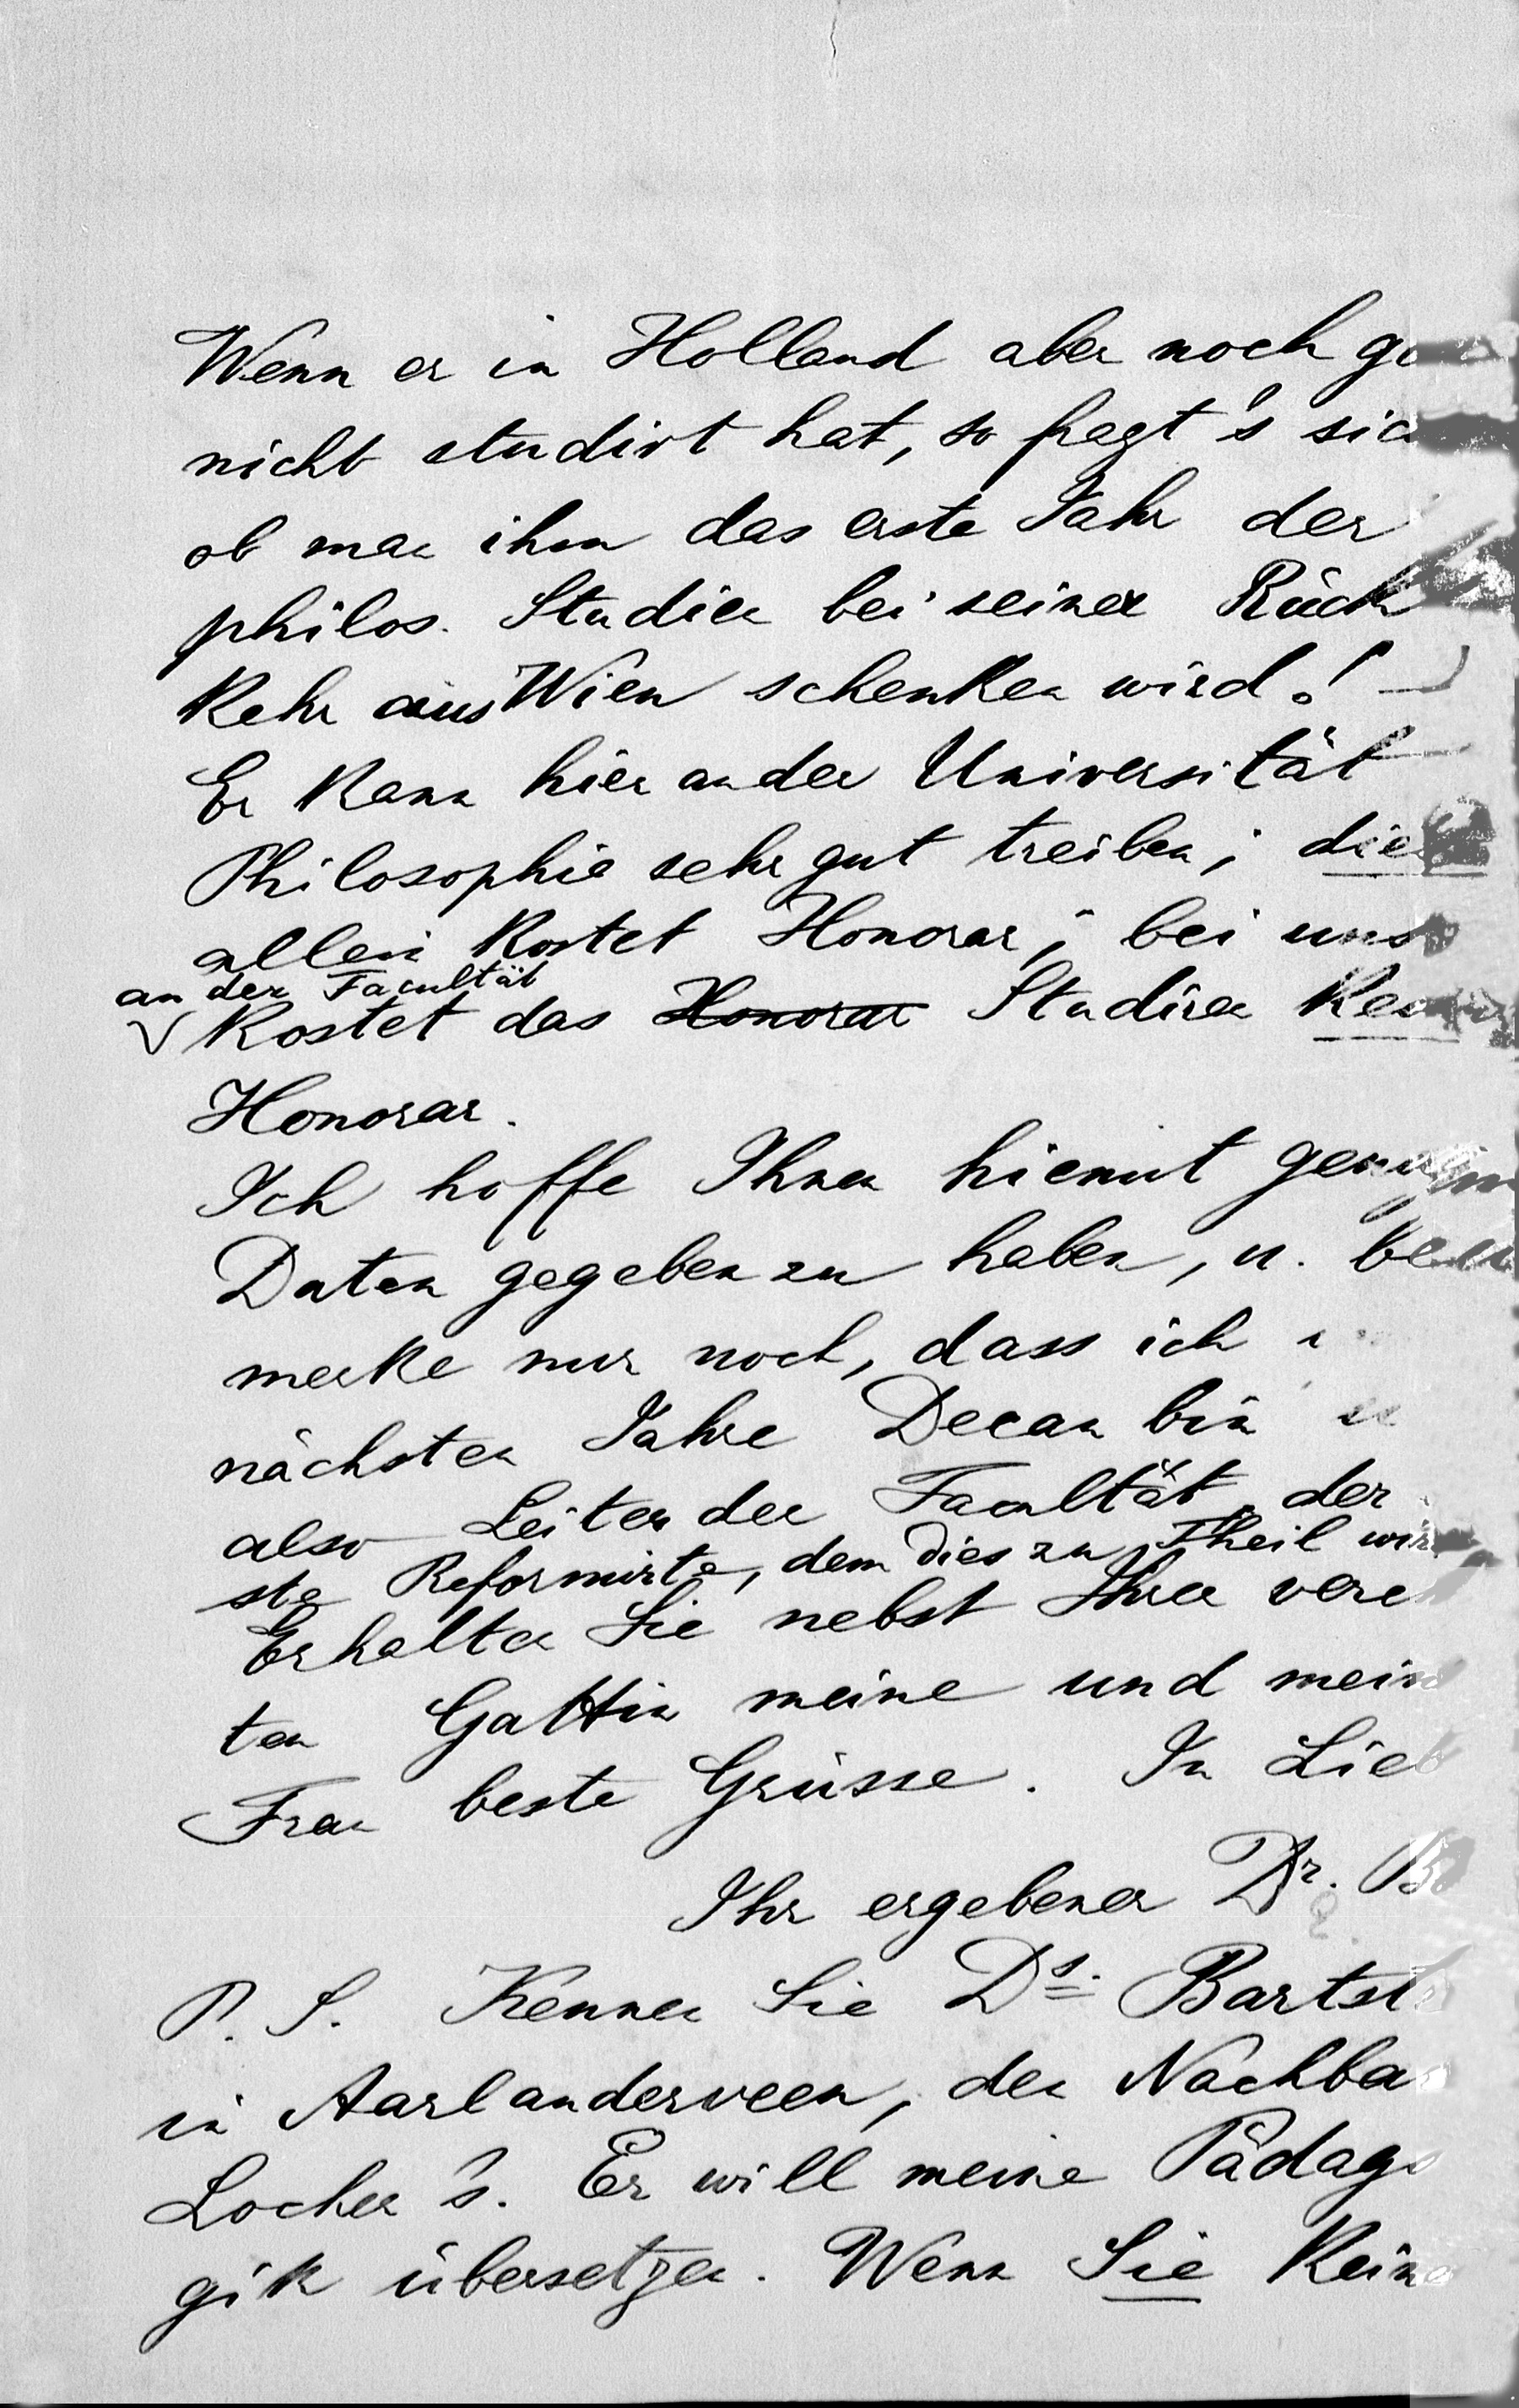 Wenn er in Holland aber noch
nicht studirt hat, so fragt's
ob man ihm das erste Jahr der
philos. Studien bei seiner Rück
kehr aus Wien schenken wird!
Er kann hier an der Universität
Philosophie sehr gut treiben;
allein kostet Honorar; bei uns
an der Facultät
kostet das Honorar Studiren
Honorar.
Ich hoffe Ihnen hiemit
Daten gegeben zu haben, u. be
merke nur noch, dass ich
nächsten Jahre Decan bin
also Leiter der Facultät, der
ste Reformirte, dem dies zu Theil
Erhalten Sie nebst Ihrer vere
ten Gattin meine und
Frau beste Grüsse. In
Ihr ergebener Dr.
P. S. Kennen Sie Ds.
in Aarlanderveen, den
Locher's. Er will meine Pädago
gik übersetzen. Wenn Sie